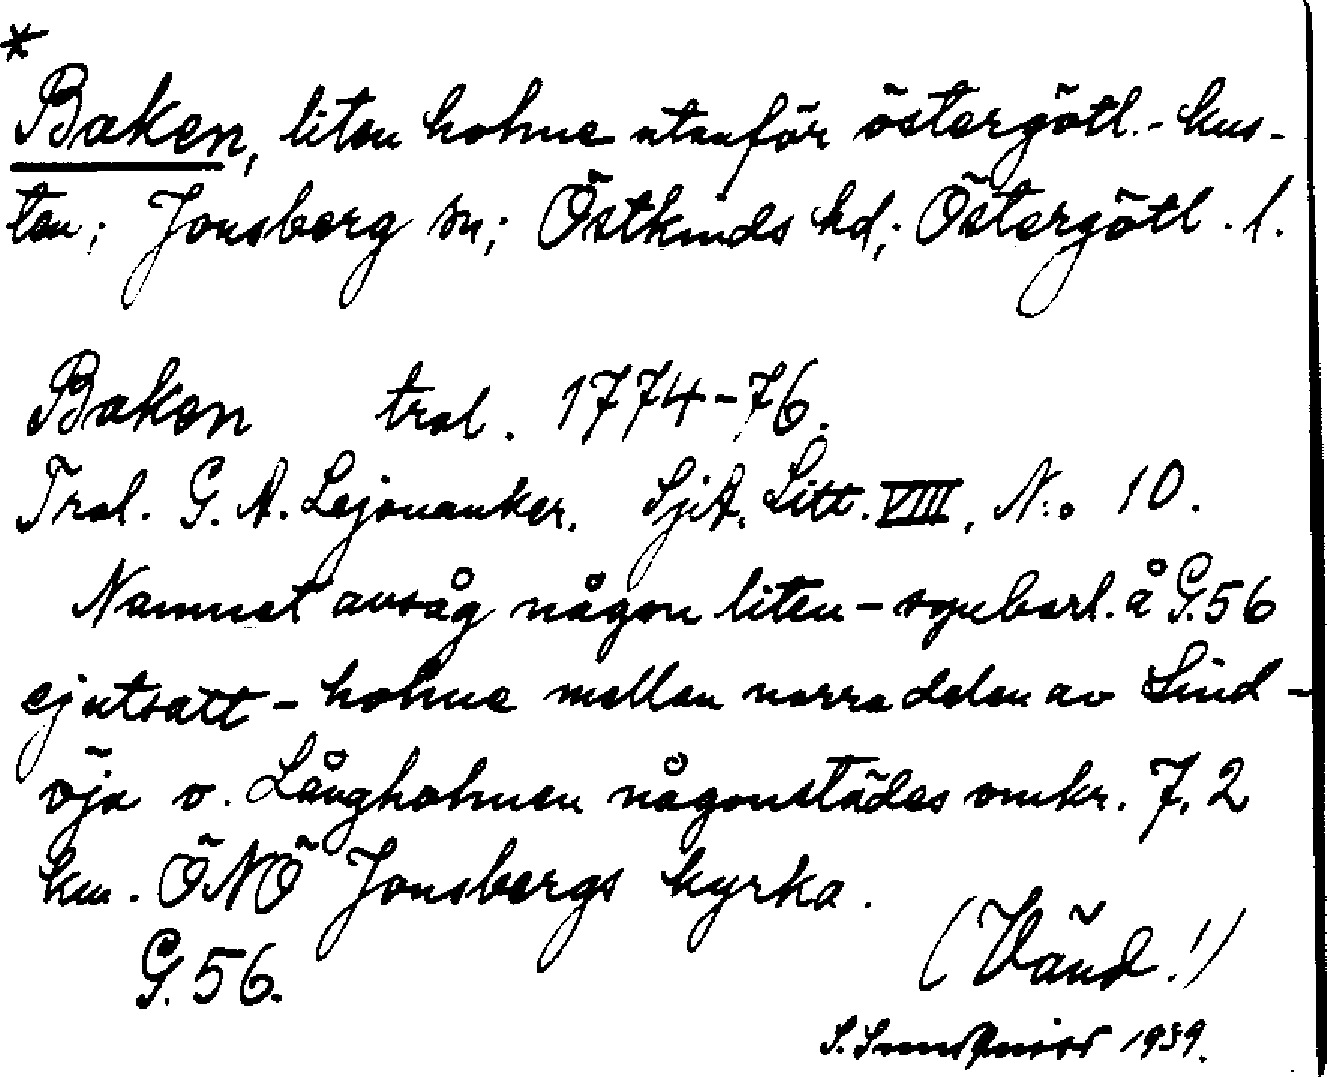 *
Baken, liten holme utanför östergötl.-kus-
ten; Jonsberg sn; Östkinds hd; Östergötl. l.
Baken trol. 1774-76.
Trol. G. A. Lejonanker. SjA. Litt. VIII, N:o 10.
Namnet avsåg någon liten - synbarl. å G.56
ej utsatt - holme mellan norra delen av Lind-
öja o. Långholmen någonstädes omkr. 7,2
km. ÖNÖ Jonsbergs kyrka.
G.56.
(Vänd!)
S. 1939.